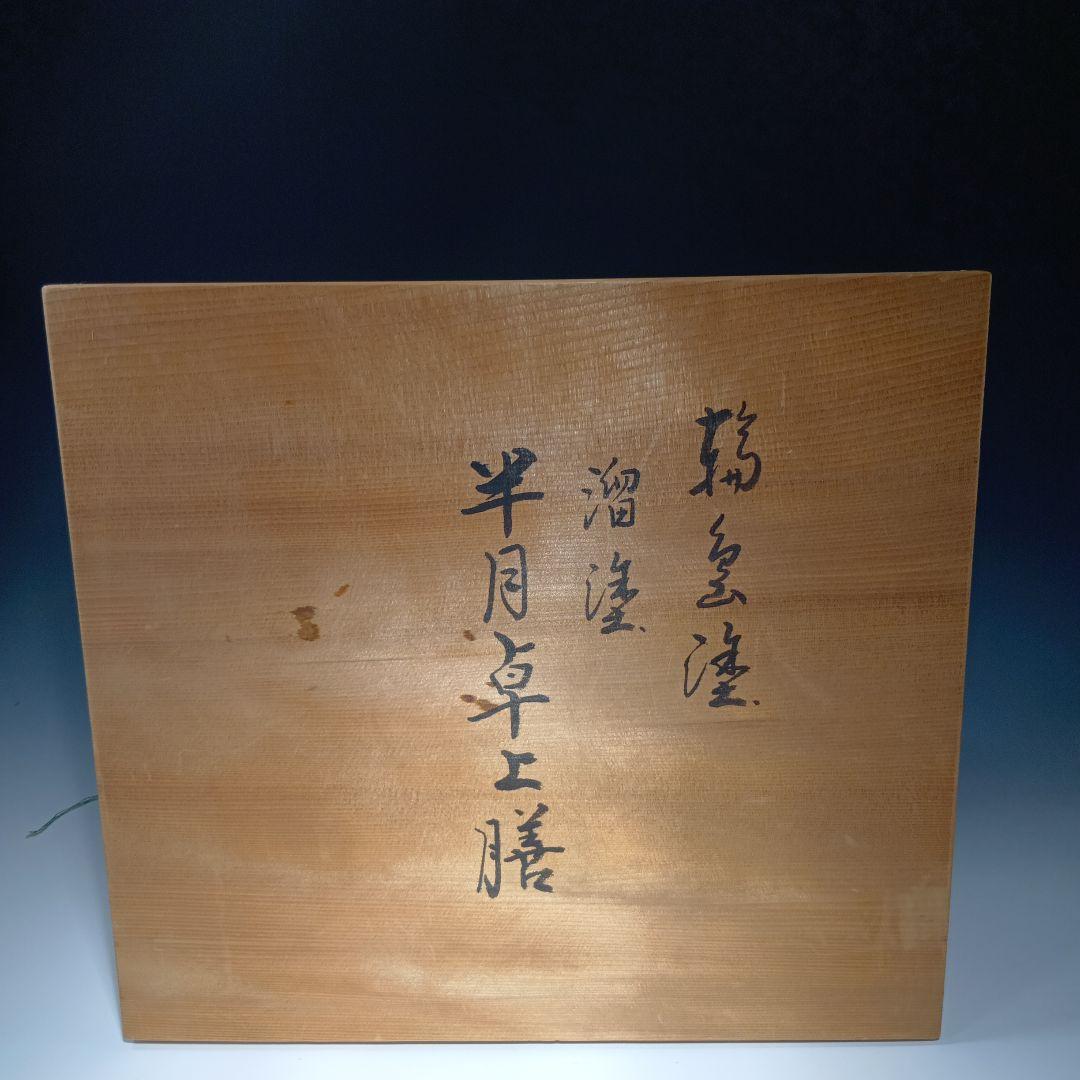 輪島塗
溜塗
半月卓上膳